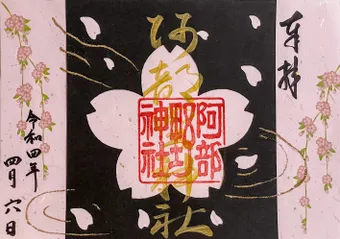 奉拝
阿部野神社
阿部野神社
令和四年
四月六日